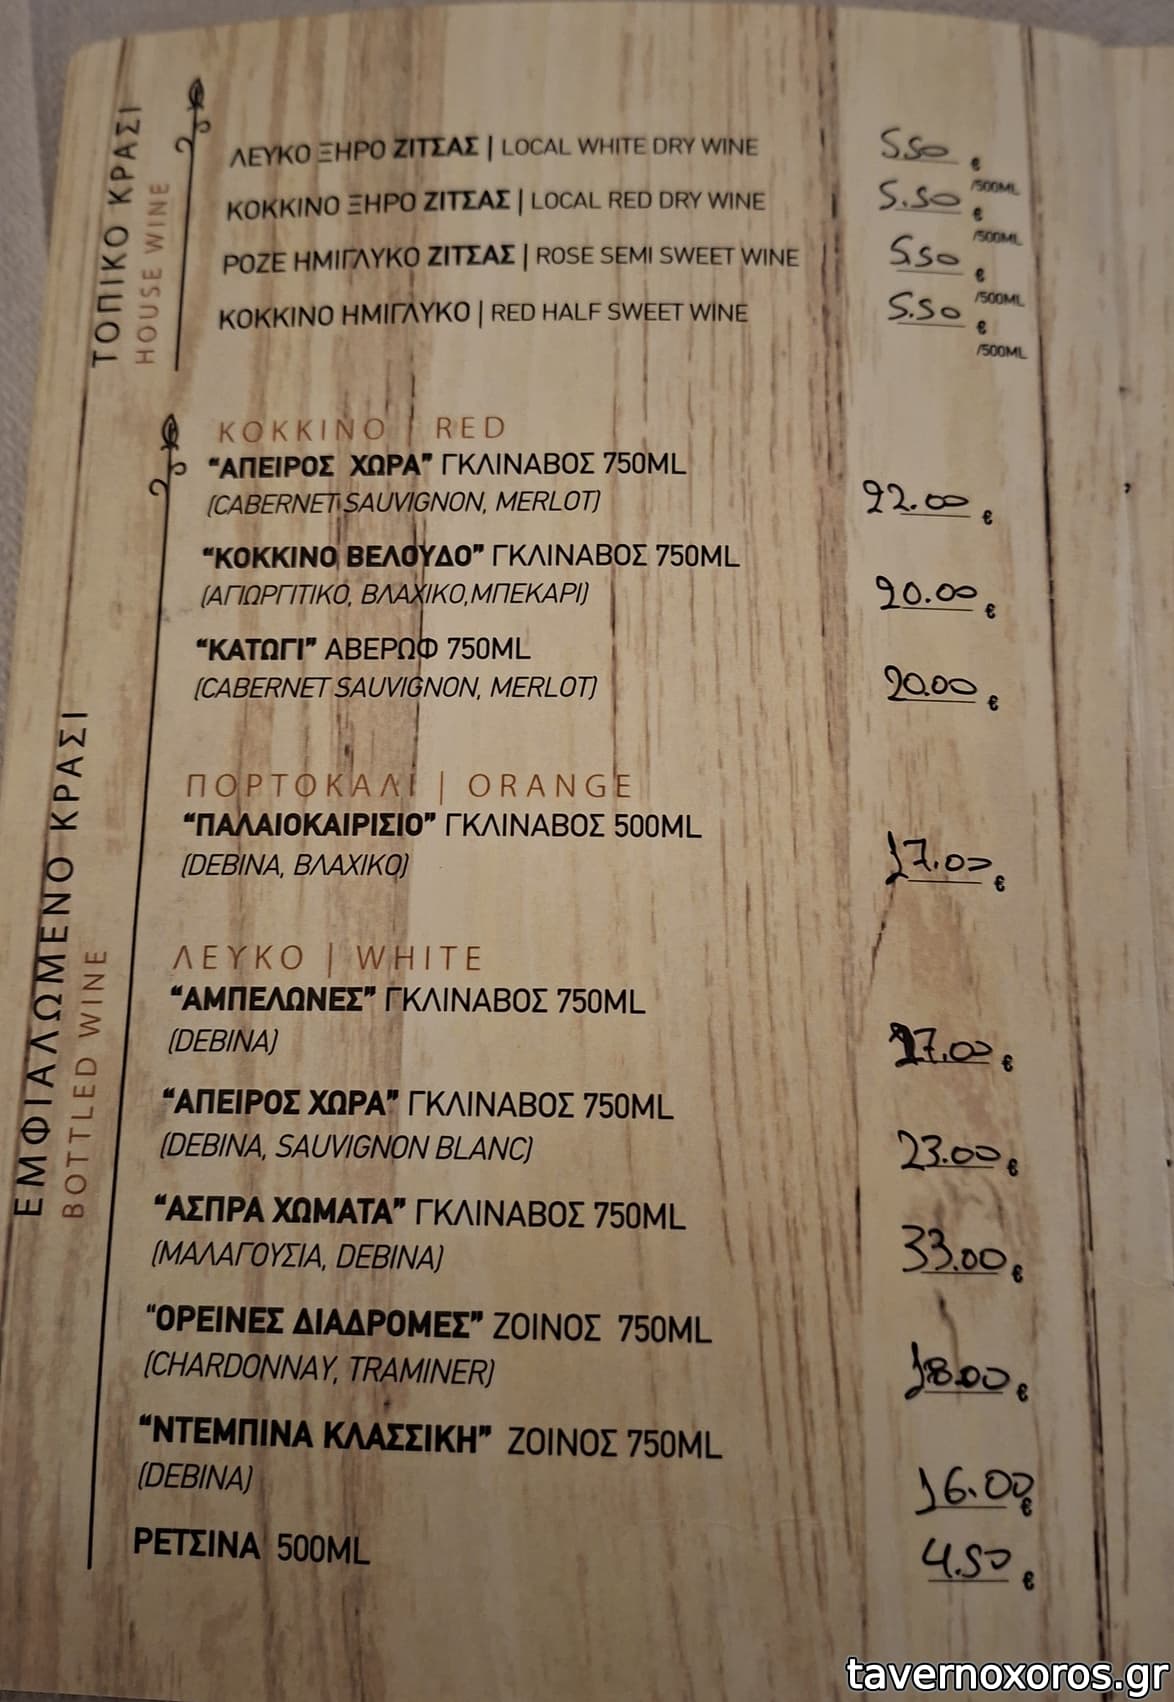 ΤΟΠΙΚΟ ΚΡΑΣΙ
HOUSE WINE
ΛΕΥΚΟ ΞΗΡΟ ΖΙΤΣΑΣ | LOCAL WHITE DRY WINE 5.50 € /500ML
ΚΟΚΚΙΝΟ ΞΗΡΟ ΖΙΤΣΑΣ | LOCAL RED DRY WINE 5.50 € /500ML
ΡΟΖΕ ΗΜΙΓΛΥΚΟ ΖΙΤΣΑΣ | ROSE SEMI SWEET WINE 5.50 € /500ML
ΚΟΚΚΙΝΟ ΗΜΙΓΛΥΚΟ | RED HALF SWEET WINE 5.50 € /500ML
ΕΜΦΙΑΛΩΜΕΝΟ ΚΡΑΣΙ
BOTTLED WINE
ΚΟΚΚΙΝΟ | RED
“ΑΠΕΙΡΟΣ ΧΩΡΑ” ΓΚΛΙΝΑΒΟΣ 750ML
(CABERNET SAUVIGNON, MERLOT) 22.00 €
“ΚΟΚΚΙΝΟ ΒΕΛΟΥΔΟ” ΓΚΛΙΝΑΒΟΣ 750ML
(ΑΓΙΩΡΓΙΤΙΚΟ, ΒΛΑΧΙΚΟ,ΜΠΕΚΑΡΙ) 20.00 €
“ΚΑΤΩΓΙ” ΑΒΕΡΩΦ 750ML
(CABERNET SAUVIGNON, MERLOT) 20.00 €
ΠΟΡΤΟΚΑΛΙ | ORANGE
“ΠΑΛΑΙΟΚΑΙΡΙΣΙΟ” ΓΚΛΙΝΑΒΟΣ 500ML
(DEBINA, ΒΛΑΧΙΚΟ) 17.00 €
ΛΕΥΚΟ | WHITE
“ΑΜΠΕΛΩΝΕΣ” ΓΚΛΙΝΑΒΟΣ 750ML
(DEBINA) 17.00 €
“ΑΠΕΙΡΟΣ ΧΩΡΑ” ΓΚΛΙΝΑΒΟΣ 750ML
(DEBINA, SAUVIGNON BLANC) 23.00 €
“ΑΣΠΡΑ ΧΩΜΑΤΑ” ΓΚΛΙΝΑΒΟΣ 750ML
(ΜΑΛΑΓΟΥΣΙΑ, DEBINA) 33.00 €
“ΟΡΕΙΝΕΣ ΔΙΑΔΡΟΜΕΣ” ΖΟΙΝΟΣ 750ML
(CHARDONNAY, TRAMINER) 18.00 €
“ΝΤΕΜΠΙΝΑ ΚΛΑΣΣΙΚΗ” ΖΟΙΝΟΣ 750ML
(DEBINA) 16.00 €
ΡΕΤΣΙΝΑ 500ML 4.50 €
tavernoxoros.gr